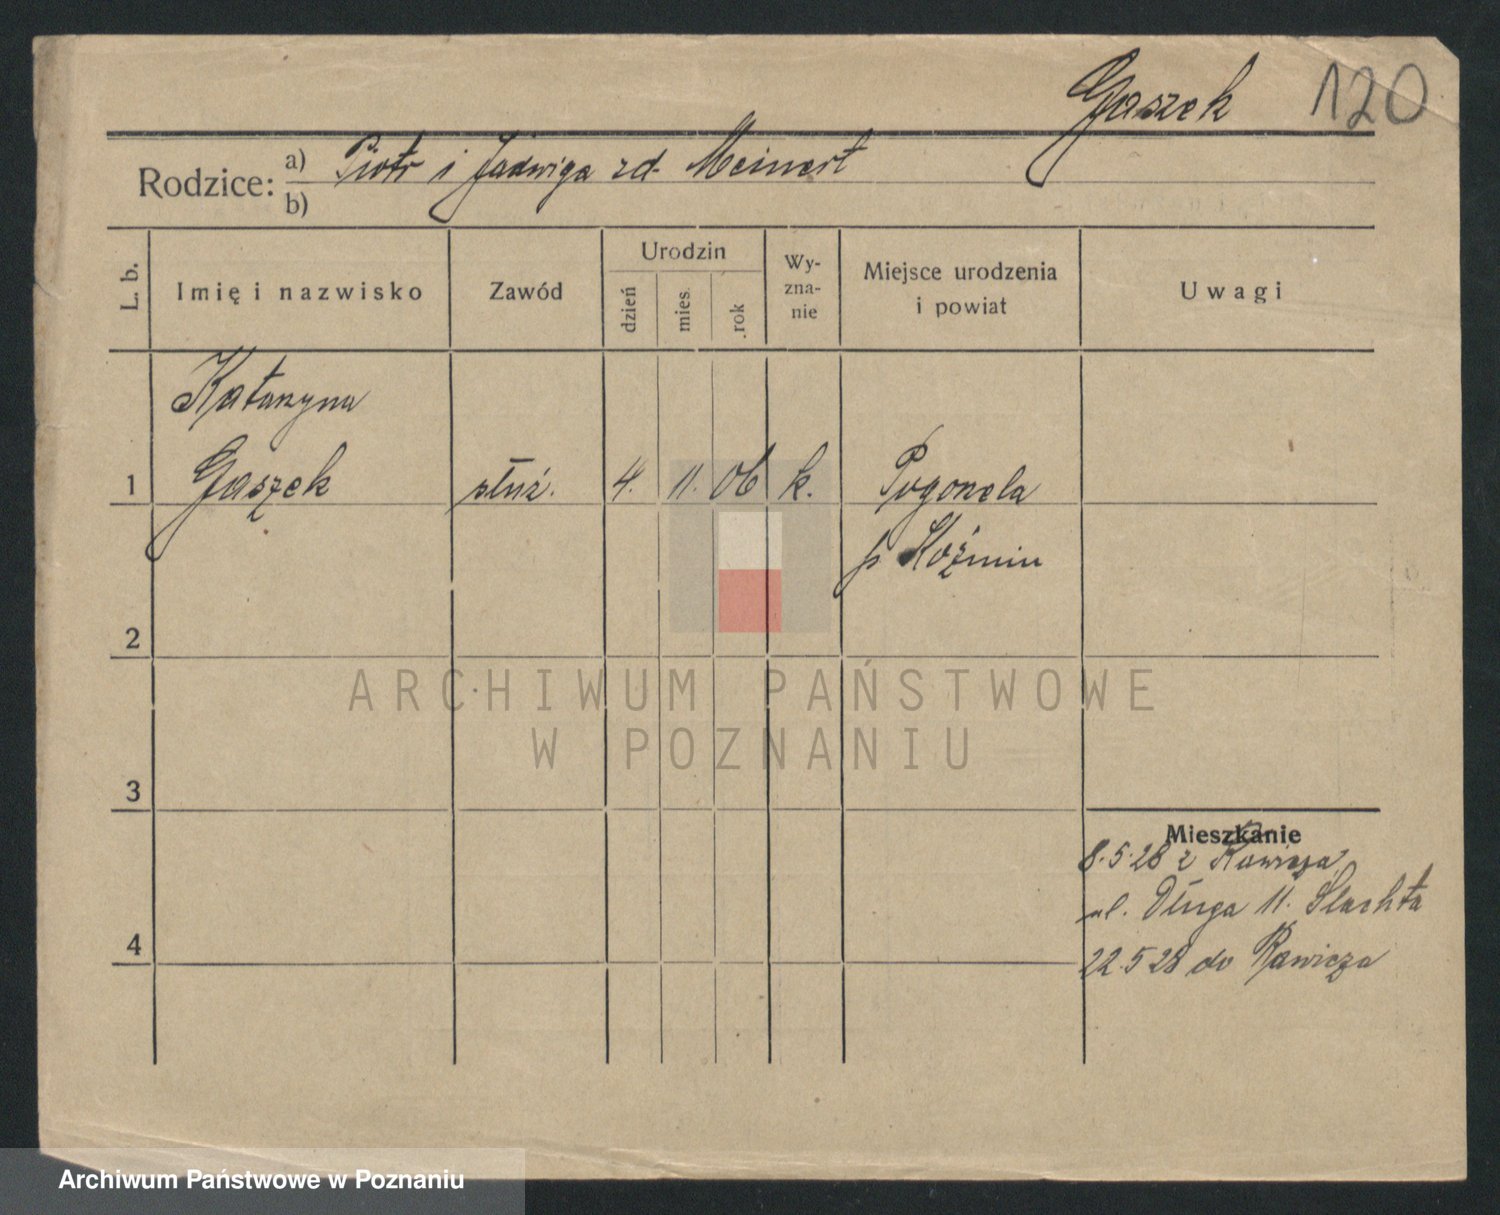 Gaszek 120
Rodzice: a) Piotr i Jadwiga zd. Meinert
b)
L. b.
Imię i nazwisko
Zawód
Urodzin
dzień
mies.
rok
Wy-
zna-
nie
Miejsce urodzenia
i powiat
Uwagi
Katarzyna
1 Gaszek służ. 4. 11. 06 k. Pogorzela
p Koźmin
2
3
4
Mieszkanie
8.5.28 z Rawicza
ul. Długa 11. Slachta
22.5 28 do Rawicza
ARCHIWUM PAŃSTWOWE
W POZNANIU
Archiwum Państwowe w Poznaniu